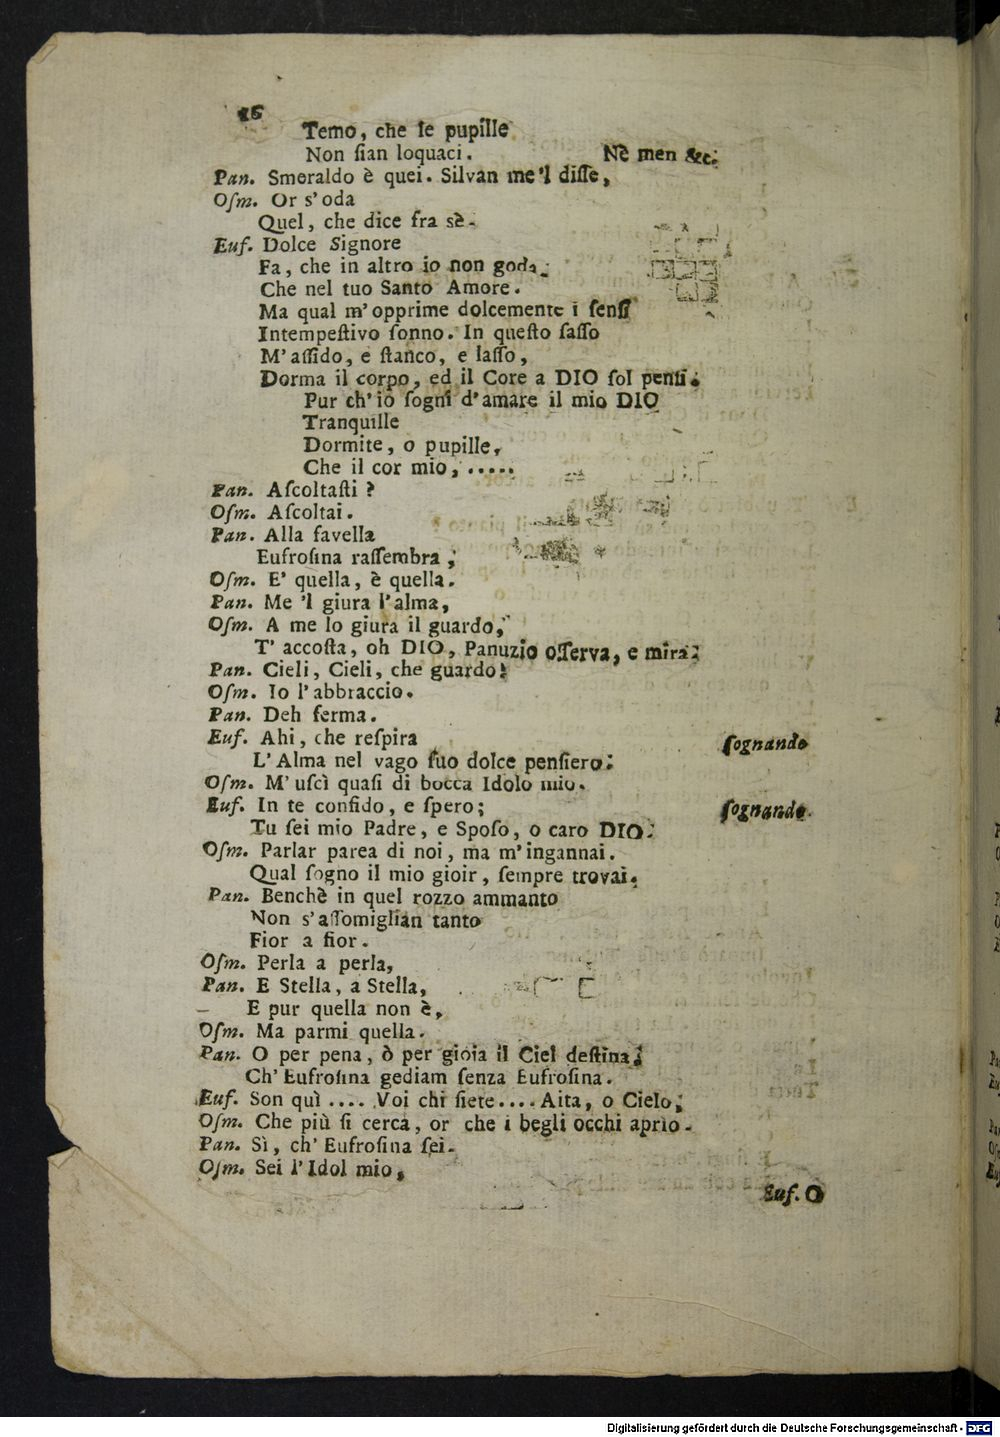 16
Temo, che le pupille
Non ſian loquaci. Nè men &c.
Pan. Smeraldo è quei. Silvan me'l diſſe,
Oſm. Or s'oda
Quel, che dice fra sè.
Euf. Dolce Signore
Fa, che in altro io non goda,
Che nel tuo Santo Amore.
Ma qual m'opprime dolcemente i ſenſi
Intempeſtivo ſonno. In queſto ſaſſo
M'aſſido, e ſtanco, e laſſo,
Dorma il corpo, ed il Core a DIO ſol penſi.
Pur ch'io ſogni d'amare il mio DIO
Tranquille
Dormite, o pupille,
Che il cor mio, .....
Pan. Aſcoltaſti ?
Oſm. Aſcoltai.
Pan. Alla favella
Eufroſina raſſembra ;
Oſm. E' quella, è quella.
Pan. Me 'l giura l'alma,
Oſm. A me lo giura il guardo,
T' accoſta, oh DIO, Panuzio oſſerva, e mira:
Pan. Cieli, Cieli, che guardo!
Oſm. Io l'abbraccio.
Pan. Deh ferma.
Euf. Ahi, che reſpira ſognando
L'Alma nel vago ſuo dolce penſiero:
Oſm. M'uſcì quaſi di bocca Idolo mio.
Euf. In te confido, e ſpero; ſognando.
Tu ſei mio Padre, e Spoſo, o caro DIO.
Oſm. Parlar parea di noi, ma m'ingannai.
Qual ſogno il mio gioir, ſempre trovai.
Pan. Benchè in quel rozzo ammanto
Non s'aſſomiglian tanto
Fior a fior.
Oſm. Perla a perla,
Pan. E Stella, a Stella,
E pur quella non è,
Oſm. Ma parmi quella.
Pan. O per pena, ò per gioia il Ciel deſtina;
Ch'Eufroſina gediam ſenza Eufroſina.
Euf. Son quì .... Voi chi ſiete.... Aita, o Cielo;
Oſm. Che più ſi cerca, or che i begli occhi aprìo.
Pan. Sì, ch'Eufroſina ſei.
Oſm. Sei l'Idol mio,
Euf. O
Digitalisierung gefördert durch die Deutsche Forschungsgemeinschaft - DFG